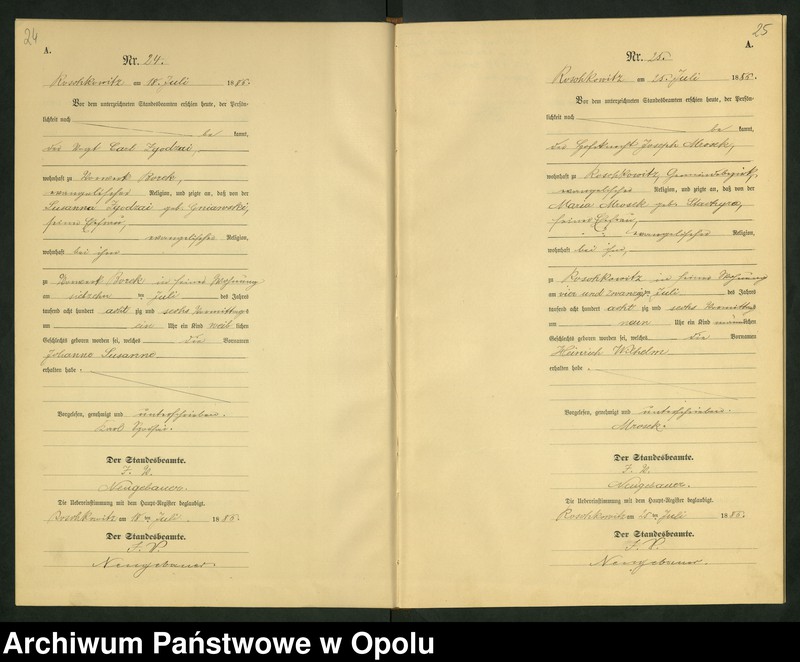 24
A.
Nr. 24.
Roschkowitz am 18. Juli 1886.
Vor dem unterzeichneten Standesbeamten erschien heute, der Persön-
lichkeit nach
be kannt,
der Vogt Carl Zgodzai,
wohnhaft zu Vorwerk Borek,
evangelischer Religion, und zeigte an, daß von der
Susanna Zgodzai geb. Gniawski,
seiner Ehefrau,
evangelischer Religion,
wohnhaft bei ihm
zu Vorwerk Borek in seiner Wohnung
am Juli des Jahres
tausend acht hundert acht zig und sechs Vormittags
um ein Uhr ein Kind weib lichen
Geschlechts geboren worden sei, welches die Vornamen
Johanne Susanne
erhalten habe.
Vorgelesen, genehmigt und unterschrieben.
Karl
Der Standesbeamte.
J. V.
Neugebauer.
Die Uebereinstimmung mit dem Haupt-Register beglaubigt.
Roschkowitz am 18ten Juli 1886.
Der Standesbeamte.
J. V.
Neugebauer.
25
A.
Nr. 25.
Roschkowitz am 25. Juli 1886.
Vor dem unterzeichneten Standesbeamten erschien heute, der Persön-
lichkeit nach
be kannt,
der Joseph Mrosek,
wohnhaft zu Roschkowitz, Gemeindebezirk,
evangelischer Religion, und zeigte an, daß von der
Maria Mrosek geb.
seiner Ehefrau,
evangelischer Religion,
wohnhaft bei ihm,
zu Roschkowitz in seiner Wohnung
am vier und zwanzigsten Juli des Jahres
tausend acht hundert acht zig und sechs Vormittags
um neun Uhr ein Kind männlichen
Geschlechts geboren worden sei, welches die Vornamen
Heinrich Wilhelm
erhalten habe.
Vorgelesen, genehmigt und unterschrieben.
Mrosek.
Der Standesbeamte.
J. V.
Neugebauer.
Die Uebereinstimmung mit dem Haupt-Register beglaubigt.
Roschkowitz am 25ten Juli 1886.
Der Standesbeamte.
J. V.
Neugebauer.
Archiwum Państwowe w Opolu